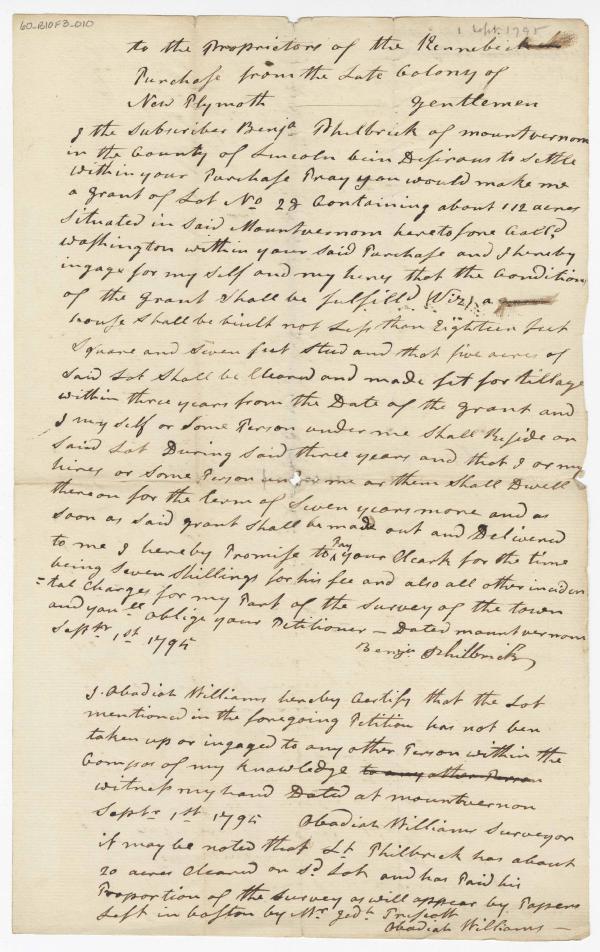 60-B10F3-010
1 Sept. 1795
to the Proprietors of the Kennebeck
Purchase from the Late Colony of
New Plymoth Gentlemen
I the Subscriber Benja Philbrick of mountvernon
in the County of Lincoln bein Desiraus to settle
within your Purchase Pray you would make me
a grant of Lot No 28 Containing about 112 acres
Situated in said Mountvernon heretofore Calld
Washington within your said Purchase and I hereby
ingage for my self and my heires that the Condition
of the grant Shall be fulfilld (Viz) a
house shall be built not Less than Eighteen feet
Square and Seven feet Stud and that five acres of
said Lot Shall be Cleared and made fit for tillage
within three years from the Date of the grant and
I my self or Some Person under me Shall Reside on
said Lot During said three years and that I or my
hires or Some Person under me or them Shall Dwell
thereon for the term of Seven years more and as
soon as said grant Shall be made out and Delivered
to me I hereby Promise to Pay your Cleark for the time
being Seven Shillings for his fee and also all other inciden
=tal Charges for my Part of the Survey of the town
and youll oblige your Petitioner — Dated mountvernon
Septr 1st 1795 Benja Philbrick
I. Obadiah Williams hereby Certify that the Lot
mentioned in the foregoing Petition has not ben
taken up or ingaged to any other Person within the
Compas of my knowledge to any other Person
witness my hand Dated at mountvernon
Septr 1st 1795 Obadiah Williams Surveyor
it may be noted that Lt Philbrick has about
20 acres Cleared on sd Lot and has Paid his
Proportion of the Survey as will appear by Papers
Left in boston by Mr Jedh Prescott
Obadiah Williams —